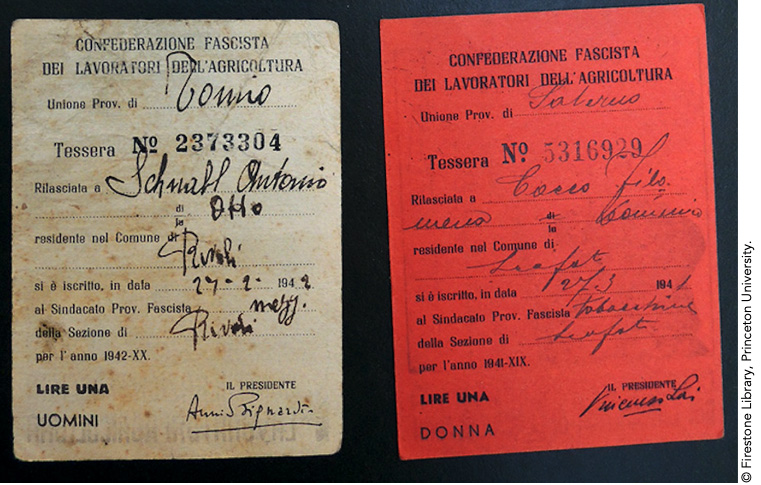 CONFEDERAZIONE FASCISTA
DEI LAVORATORI DELL'AGRICOLTURA
Unione Prov. di Torino
Tessera Nº 2373304
Rilasciata a Schnabl Antonio
di Otto
la
residente nel Comune di
Rivoli
si è iscritto, in data 27-2- 1942
al Sindacato Prov. Fascista mezz.
della Sezione di Rivoli
per l'anno 1942-XX.
LIRE UNA
IL PRESIDENTE
UOMINI
CONFEDERAZIONE FASCISTA
DEI LAVORATORI DELL'AGRICOLTURA
Unione Prov. di Salerno
Tessera Nº 5316929
Rilasciata a Cocco Filo-
mena di Dominico
la
residente nel Comune di
Scafati
si è iscritto, in data 27/3 1941
al Sindacato Prov. Fascista Tabacchine
della Sezione di Scafati
per l'anno 1941-XIX.
LIRE UNA
IL PRESIDENTE
DONNA
© Firestone Library, Princeton University.